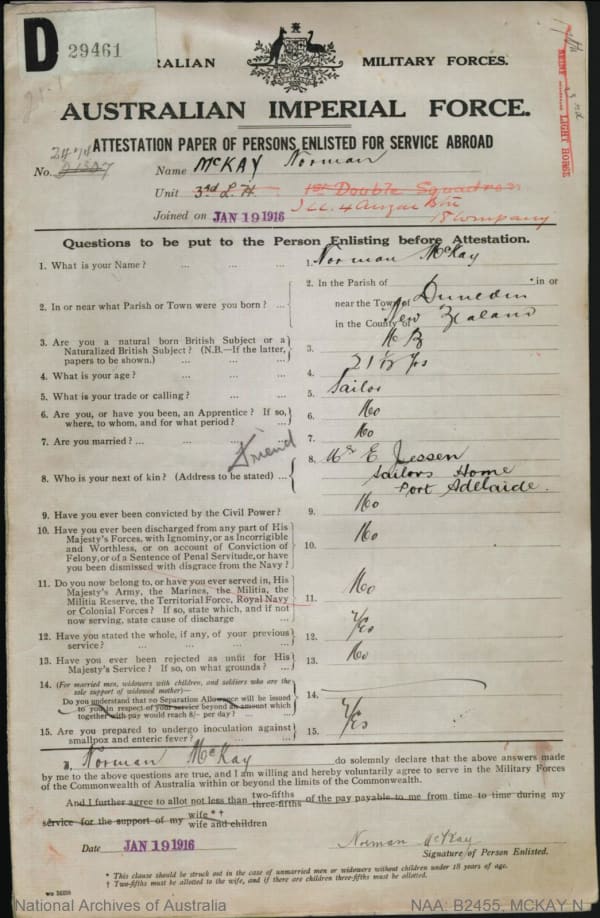 D 29461
RALIAN MILITARY FORCES.
AUSTRALIAN IMPERIAL FORCE.
ATTESTATION PAPER OF PERSONS ENLISTED FOR SERVICE ABROAD
No. Name McKAY Norman
Unit 3rd L.H. 1st Double Squadron
LIGHT HORSE
Joined on JAN 19 1916
Questions to be put to the Person Enlisting before Attestation.
1. What is your Name? ... ... ... 1. Norman McKay
2. In or near what Parish or Town were you born? ... 2. In the Parish of in or
near the Town of Dunedin
in the County of New Zealand
3. Are you a natural born British Subject or a
Naturalized British Subject? (N.B.—If the latter,
papers to be shown.) ... ... ... 3. N B
4. What is your age? ... ... ... 4. 21 yrs
5. What is your trade or calling? ... ... 5. Sailor
6. Are you, or have you been, an Apprentice? If so,
where, to whom, and for what period? ... 6. No
7. Are you married? ... ... ... ... 7. No
Friend
8. Who is your next of kin? (Address to be stated) ... 8. E Jessen
Sailors Home
Port Adelaide.
9. Have you ever been convicted by the Civil Power? 9. No
10. Have you ever been discharged from any part of His
Majesty's Forces, with Ignominy, or as Incorrigible
and Worthless, or on account of Conviction of
Felony, or of a Sentence of Penal Servitude, or have
you been dismissed with disgrace from the Navy? 10. No
11. Do you now belong to, or have you ever served in, His
Majesty's Army, the Marines, the Militia, the
Militia Reserve, the Territorial Force, Royal Navy
or Colonial Forces? If so, state which, and if not
now serving, state cause of discharge ... 11. No
12. Have you stated the whole, if any, of your previous
service? ... ... ... ... 12. Yes
13. Have you ever been rejected as unfit for His
Majesty's Service? If so, on what grounds? ... 13. No
14. (For married men, widowers with children, and soldiers who are the
sole support of widowed mother)—
Do you understand that no Separation Allowance will be issued
to you in respect of your service beyond an amount which
together with pay would reach 8/- per day? ... ... 14.
15. Are you prepared to undergo inoculation against
smallpox and enteric fever? ... ... 15. Yes
I, Norman McKay do solemnly declare that the above answers made
by me to the above questions are true, and I am willing and hereby voluntarily agree to serve in the Military Forces
of the Commonwealth of Australia within or beyond the limits of the Commonwealth.
And I further agree to allot not less than two-fifths three-fifths of the pay payable to me from time to time during my
service for the support of my wife*† wife and children
Date JAN 19 1916 Norman McKay
Signature of Person Enlisted.
* This clause should be struck out in the case of unmarried men or widowers without children under 18 years of age.
† Two-fifths must be allotted to the wife, and if there are children three-fifths must be allotted.
National Archives of Australia NAA: B2455, MCKAY N